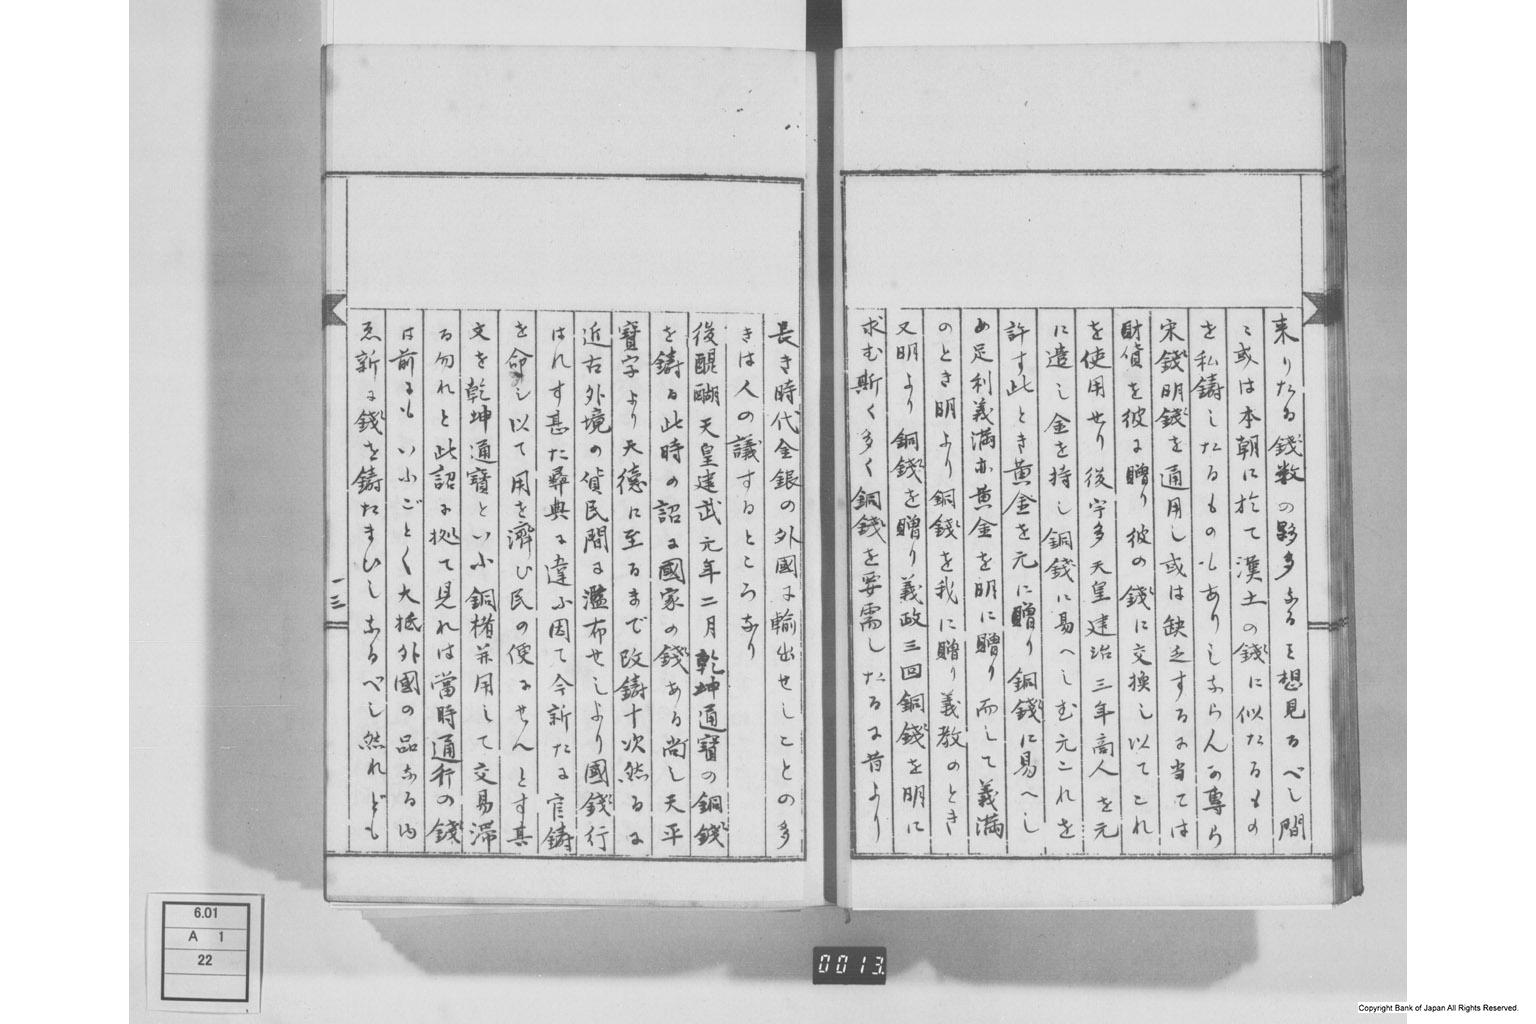 来りたる錢数の夥多なるを想見るべし間
ゝ或は本朝に於て漢土の錢に似たるもの
を私鑄したるものもありしならんか専ら
宋錢明錢を通用し或は缺乏するに当ては
財貨を彼に贈り彼の錢に交換し以てこれ
を使用せり後宇多天皇建治三年商人を元
に遣し金を持し銅錢に易へしむ元これを
許す此とき黄金を元に贈り銅錢に易へし
め足利義満亦黄金を明に贈り而して義満
のとき明より銅錢を我に贈り義教のとき
又明より銅錢を贈り義政三回銅錢を明に
求む斯く多く銅錢を要需したるに昔より
長き時代金銀の外國に輸出せしことの多
きは人の議するところなり
後醍醐天皇建武元年二月乾坤通寶の銅錢
を鑄る此時の詔に國家の錢ある尚し天平
寶字より天德に至るまで改鑄す次然るに
近古外境の貨民間に濫布せしより國錢行
はれす甚た彝典に違ふ因て今新たに官鑄
を命し以て用を濟ひ民の便にせんとす其
文を乾坤通寶といふ銅楮并用して交易滞
る勿れと此詔に拠て見れは當時通行の錢
は前にもいふごとく大抵外國の品なる内
ゑ新に錢を鑄たまひしなるべし然れども
一三
6.01
A 1
22
0013.
Copyright Bank of Japan All Rights Reserved.